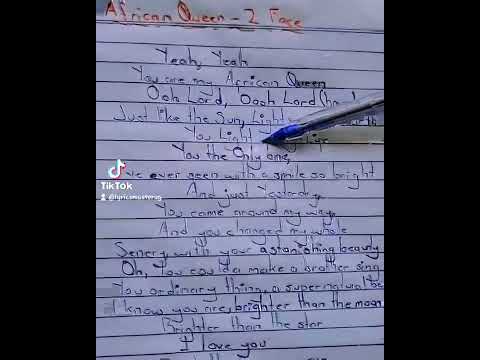 African Queen - 2 Face
Yeah, Yeah
You are my African Queen
Ooh Lord, Oooh Lord
Just like the Sun, Light
You Light
You the Only one,
I've ever seen with a smile so bright
And just Yesterday
You came around my way
And you changed my whole
Senery, with your astanishing beauty
Oh, You coulda make a brother sing
You ordinary thing, a supernatural be
I know you are, brighter than the moon
Brighter than the star
I love you
TikTok
@lyricsmasterug